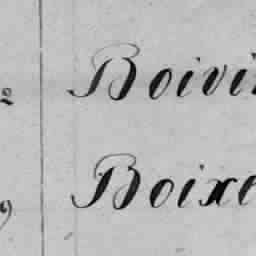 2 Boivi
9 Boixe